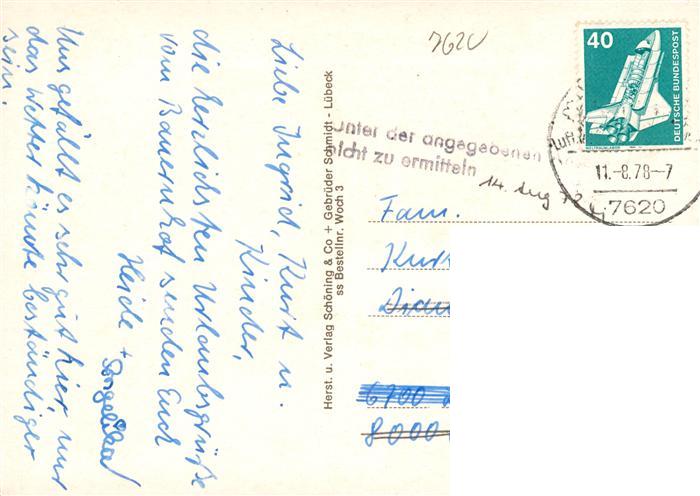 Liebe Ingrid, Kurt u.
Kinder,
die herzlichsten Urlaubsgrüße
vom Bauernhof senden Euch
Heide + Angelika
Uns gefällt es sehr gut hier, nur
das Wetter könnte beständiger
sein.
Herst. u. Verlag Schöning & Co + Gebrüder Schmidt - Lübeck
ss Bestellnr. Woch 3
7620
Unter der angegebenen
icht zu ermitteln
14. Aug 78
40
DEUTSCHE BUNDESPOST
WELTRAUMLABOR
Luft
11.-8.78-7
7620
Fam.
Kur
Dia
6700
8000